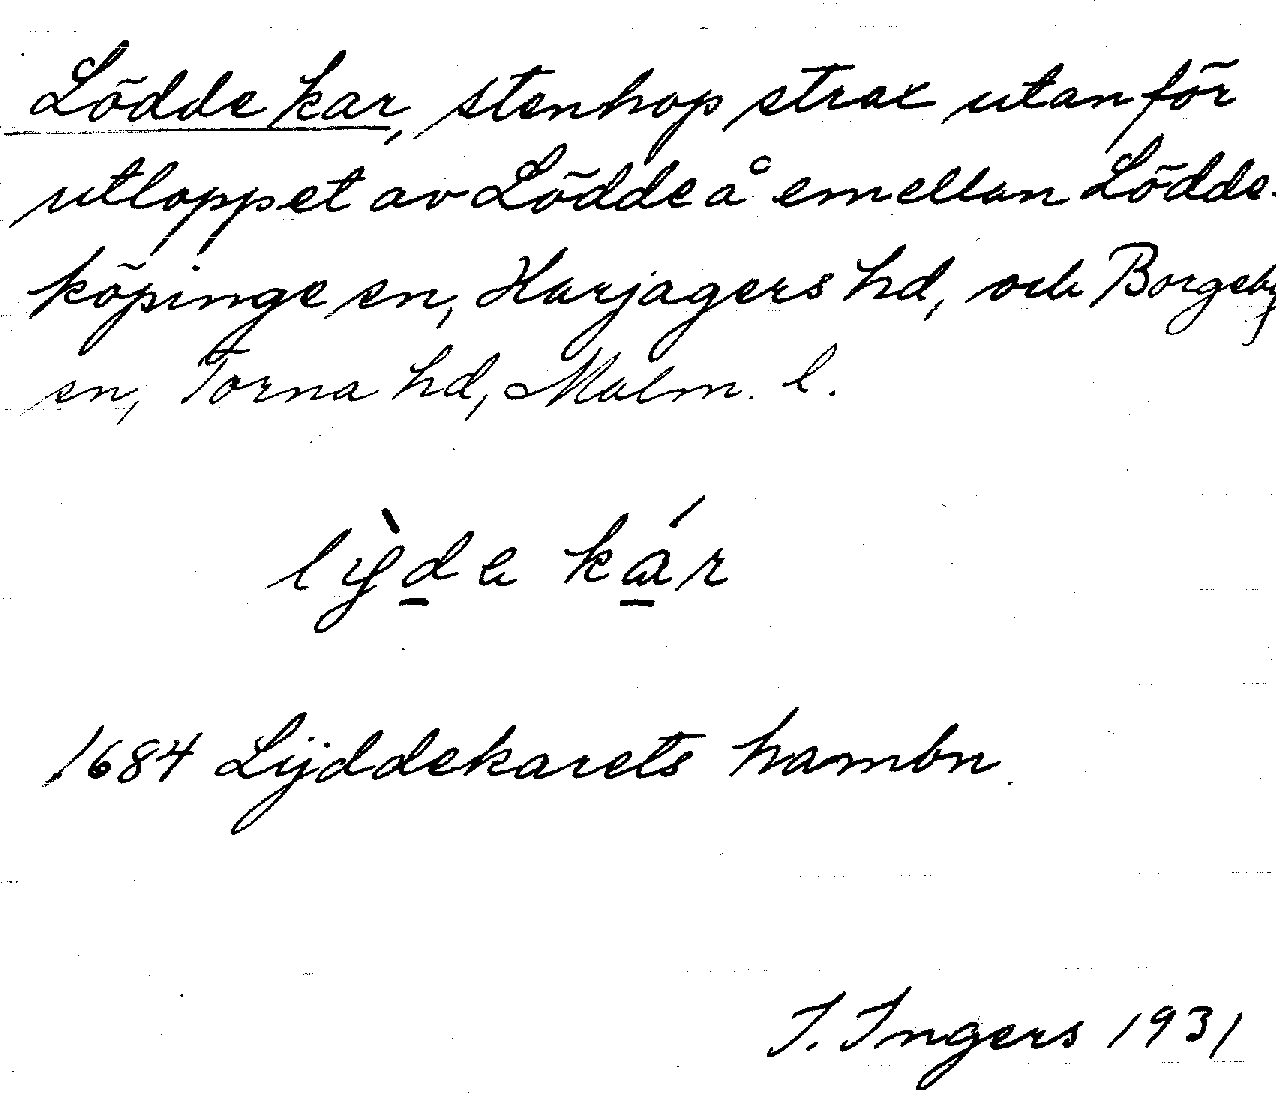 Lödde kar, stenhop strax utanför
utloppet av Löddeå emellan Lödde-
köpinge sn, Harjagers hd, och Borgeby
sn, Torna hd, Malm. l.
lỳde kár
1684 Lijddekarets hambn
I. Ingers 1931